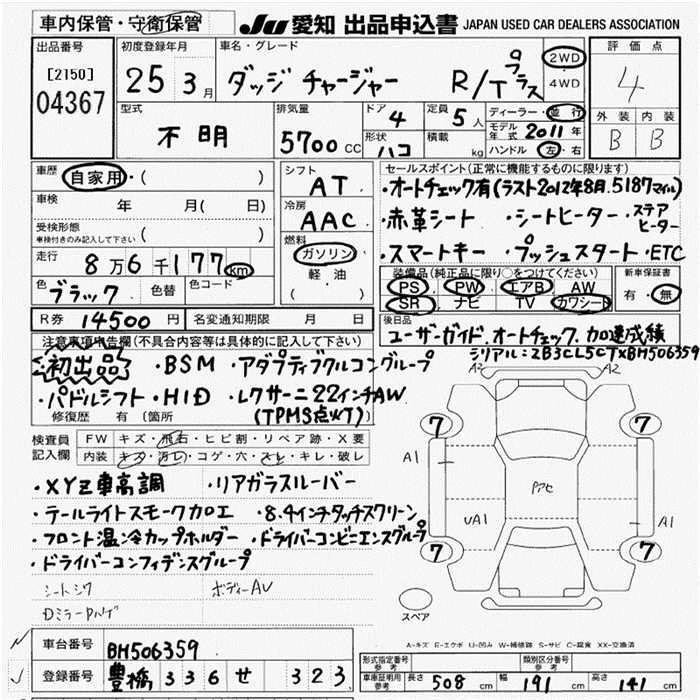 車内保管・守衛保管
JU 愛知 出品申込書 JAPAN USED CAR DEALERS ASSOCIATION
出品番号
[2150]
04367
初度登録年月
25 3月
車名・グレード
ダッジ チャージャー R/T プラス
2WD
4WD
評価点
4
外装 内装
B B
型式
不明
排気量
5700 CC
ドア 4
形状 ハコ
定員 5人
積載 kg
ディーラー・並行
モデル年式 2011年
ハンドル 左・右
車歴
自家用・( )
車検
年 月( 日)
受検形態
車検付きのみ記入して下さい
( )
走行
8万6千177km
色
ブラック
色替
色コード
シフト
AT
冷房
AAC
燃料
ガソリン
軽・油
( )
R券 14500円
名変通知期限 月 日
セールスポイント(正常に機能するものに限ります)
・オートチェック有(ラスト2012年8月.5187マイル)
・赤革シート ・シートヒーター ・ステアヒーター
・スマートキー ・プッシュスタート ・ETC
装備品(純正品に限り○をつけてください)
PS PW エアB AW
SR ナビ TV カワシート
新車保証書
有・無
後日品
ユーザーガイド.オートチェック.加速成績
シリアル:2B3CL5CTXBH506359
注意事項申告欄(不具合内容等は具体的に記入して下さい)
初出品 ・BSM ・アダプティブクルコングループ
・パドルシフト ・HID ・レクサーニ22インチAW
(TPMS点灯)
修復歴 有 (箇所
検査員記入欄
FW キズ・飛石・ヒビ割・リペア跡・X要
内装 キズ・汚レ・コゲ・穴・スレ・キレ・破レ
・XYZ車高調 ・リアガラスルーバー
・テールライトスモーク加工 ・8.4インチタッチスクリーン
・フロント温冷カップホルダー ・ドライバーコンビニエンスグループ
・ドライバーコンフィデンスグループ
シートシワ ボディーAU
A2 A2
7 7
A1
UA1
A1
7 7
スペア
A-キズ E-エクボ U-凹み W-補修跡 S-サビ C-腐食 XX-交換済
車台番号 BH506359
登録番号 豊橋 336 せ 323
形式指定番号
参考
類別区分番号
参考
車庫証明用
参考
長さ 508 cm 幅 191 cm 高さ 141 cm